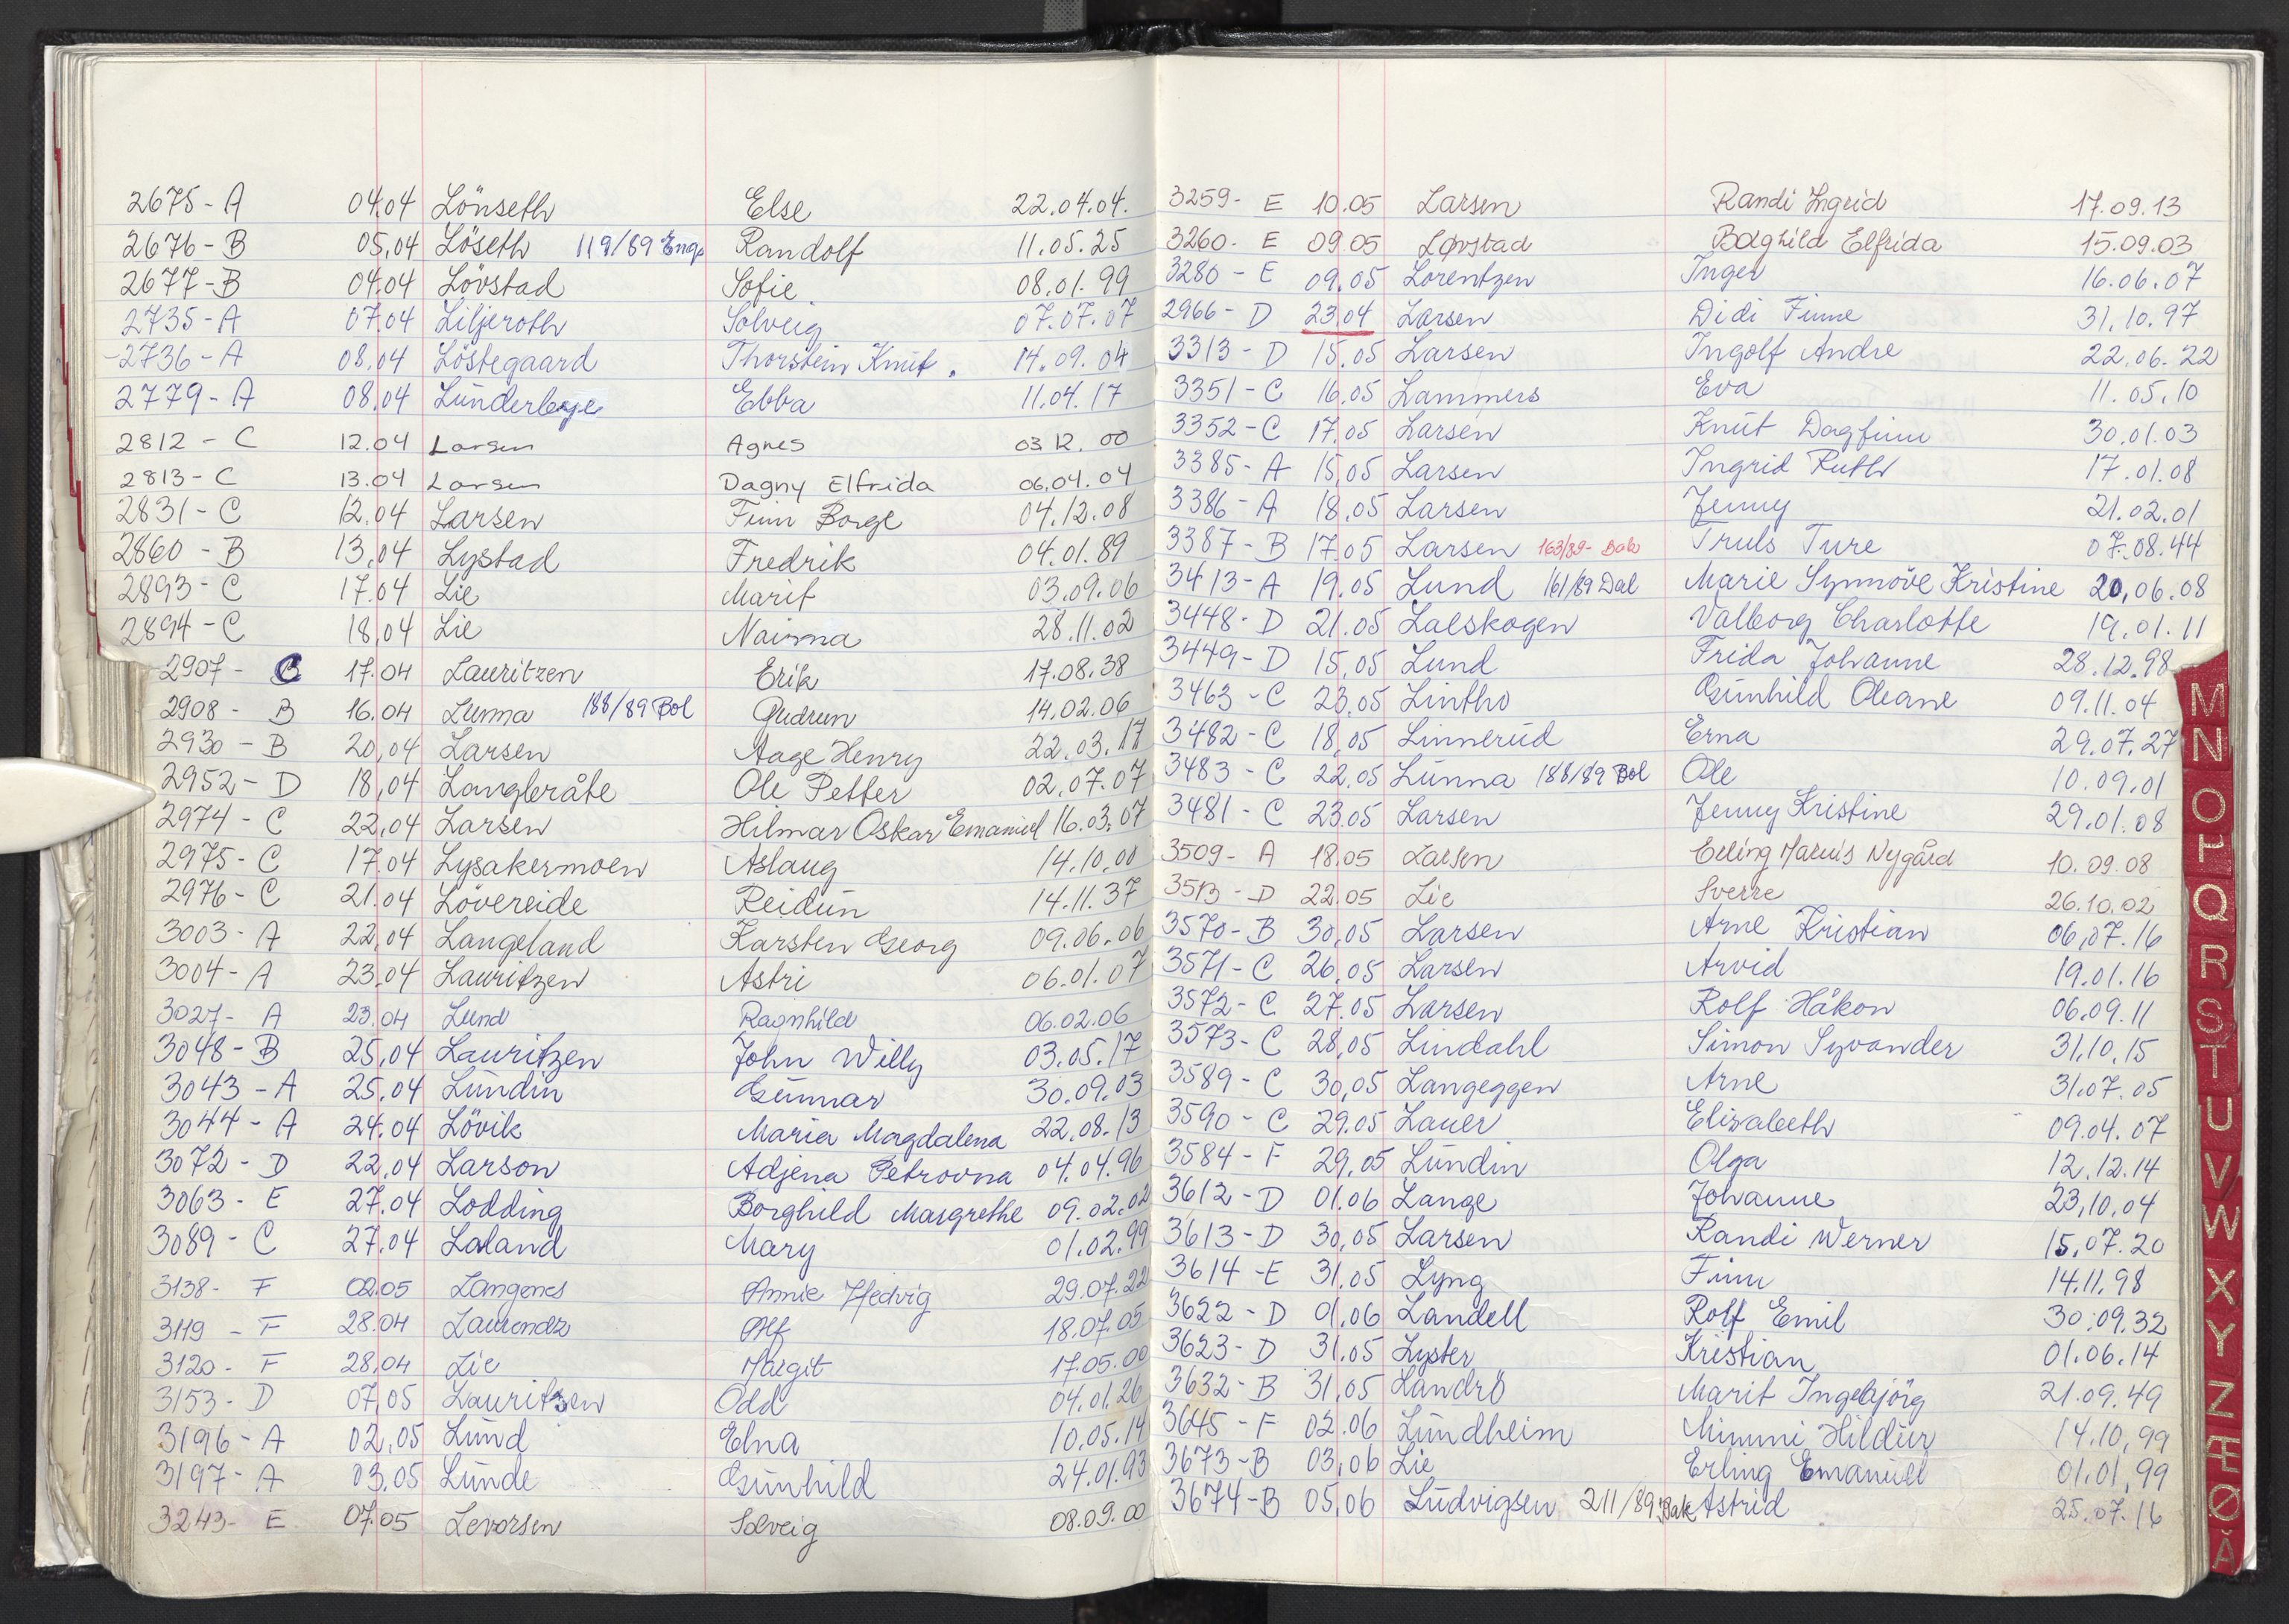 2675-A 04.04 Lönseth Else 22.04.04.
2676-B 05.04 Löseth 119/89 Eng. Randolf 11.05.25
2677-B 04.04 Lövstad Sofie 08.01.99
2735-A 07.04 Liljeroth Solveig 07.07.07
-2736-A 08.04 Löstegaard Thorstein Knut. 14.09.04
2779-A 08.04 Lunderbye Ebba 11.04.17
2812-C 12.04 Larsen Agnes 03.12.00
2813-C 13.04 Larsen Dagny Elfrida 06.04.04
2831-C 12.04 Larsen Finn Borge 04.12.08
2860-B 13.04 Lystad Fredrik 04.01.89
2893-C 17.04 Lie Marit 03.09.06
2894-C 18.04 Lie Naimna 28.11.02
2907-C 17.04 Lauritzen Erik 17.08.38
2908-B 16.04 Lunna 188/89 Bol Gudrun 14.02.06
2930-B 20.04 Larsen Aage Henry 22.03.17
2952-D 18.04 Langleråte Ole Petter 02.07.07
2974-C 22.04 Larsen Hilmar Oskar Emanuel 16.03.07
2975-C 17.04 Lysakermoen Aslaug 14.10.00
2976-C 21.04 Lövereide Reidun 14.11.37
3003-A 22.04 Langeland Karsten Georg 09.06.06
3004-A 23.04 Lauritzen Astri 06.01.07
3027-A 23.04 Lund Ragnhild 06.02.06
3048-B 25.04 Lauritzen John Willy 03.05.17
3043-A 25.04 Lundin Gunnar 30.09.03
3044-A 24.04 Lövik Maria Magdalena 22.08.13
3072-D 22.04 Larson Adjena Petrovna 04.04.96
3063-E 27.04 Lodding Borghild Margrethe 09.02.02
3089-C 27.04 Laland Mary 01.02.99
3138-F 02.05 Langenes Annie Hedvig 29.07.22
3119-F 28.04 Laurendz Alf 18.07.05
3120-F 28.04 Lie Margit 17.05.00
3153-D 07.05 Lauritsen Odd 04.01.26
3196-A 02.05 Lund Elna 10.05.14
3197-A 03.05 Lunde Gunhild 24.01.93
3243-E 07.05 Levorsen Solveig 08.09.00
3259-E 10.05 Larsen Randi Ingrid 17.09.13
3260-E 09.05 Løvstad Borghild Elfrida 15.09.03
3280-E 09.05 Lorentzen Inger 16.06.07
2966-D 23.04 Larsen Didi Finne 31.10.97
3313-D 15.05 Larsen Ingolf Andre 22.06.22
3351-C 16.05 Lammers Eva 11.05.10
3352-C 17.05 Larsen Knut Dagfinn 30.01.03
3385-A 15.05 Larsen Ingrid Ruth 17.01.08
3386-A 18.05 Larsen Jenny 21.02.01
3387-B 17.05 Larsen 163/89-Bak Truls Ture 07.08.44
3413-A 19.05 Lund 161/89 Dal Marie Synnöve Kristine 20.06.08
3448-D 21.05 Lalskogen Valborg Charlotte 19.01.11
3449-D 15.05 Lund Frida Johanne 28.12.98
3463-C 23.05 Lintho Gunhild Oleane 09.11.04
3482-C 18.05 Linnerud Erna 29.07.27
3483-C 22.05 Lunna 188/89 Bol Ole 10.09.01
3481-C 23.05 Larsen Jenny Kristine 29.01.08
3509-A 18.05 Larsen Erling Marius Nygård 10.09.08
3513-D 22.05 Lie Sverre 26.10.02
3570-B 30.05 Larsen Arne Kristian 06.07.16
3571-C 26.05 Larsen Arvid 19.01.16
3572-C 27.05 Larsen Rolf Håkon 06.09.11
3573-C 28.05 Lindahl Simon Syvander 31.10.15
3589-C 30.05 Langeggen Arne 31.07.05
3590-C 29.05 Lauer Elisabeth 09.04.07
3584-F 29.05 Lundin Olga 12.12.14
3612-D 01.06 Lange Johanne 23.10.04
3613-D 30.05 Larsen Randi Werner 15.07.20
3614-E 31.05 Lyng Finn 14.11.98
3622-D 01.06 Landell Rolf Emil 30.09.32
3623-D 31.05 Lyster Kristian 01.06.14
3632-B 31.05 Landrö Marit Ingebjörg 21.09.49
3645-F 02.06 Lundheim Mimmi Hildur 14.10.99
3673-B 03.06 Lie Erling Emanuel 01.01.99
3674-B 05.06 Ludvigsen 211/89 Bak Astrid 25.07.16
M
N
O
P
Q
R
S
T
U
V
W
X
Y
Z
Æ
Ø
Å